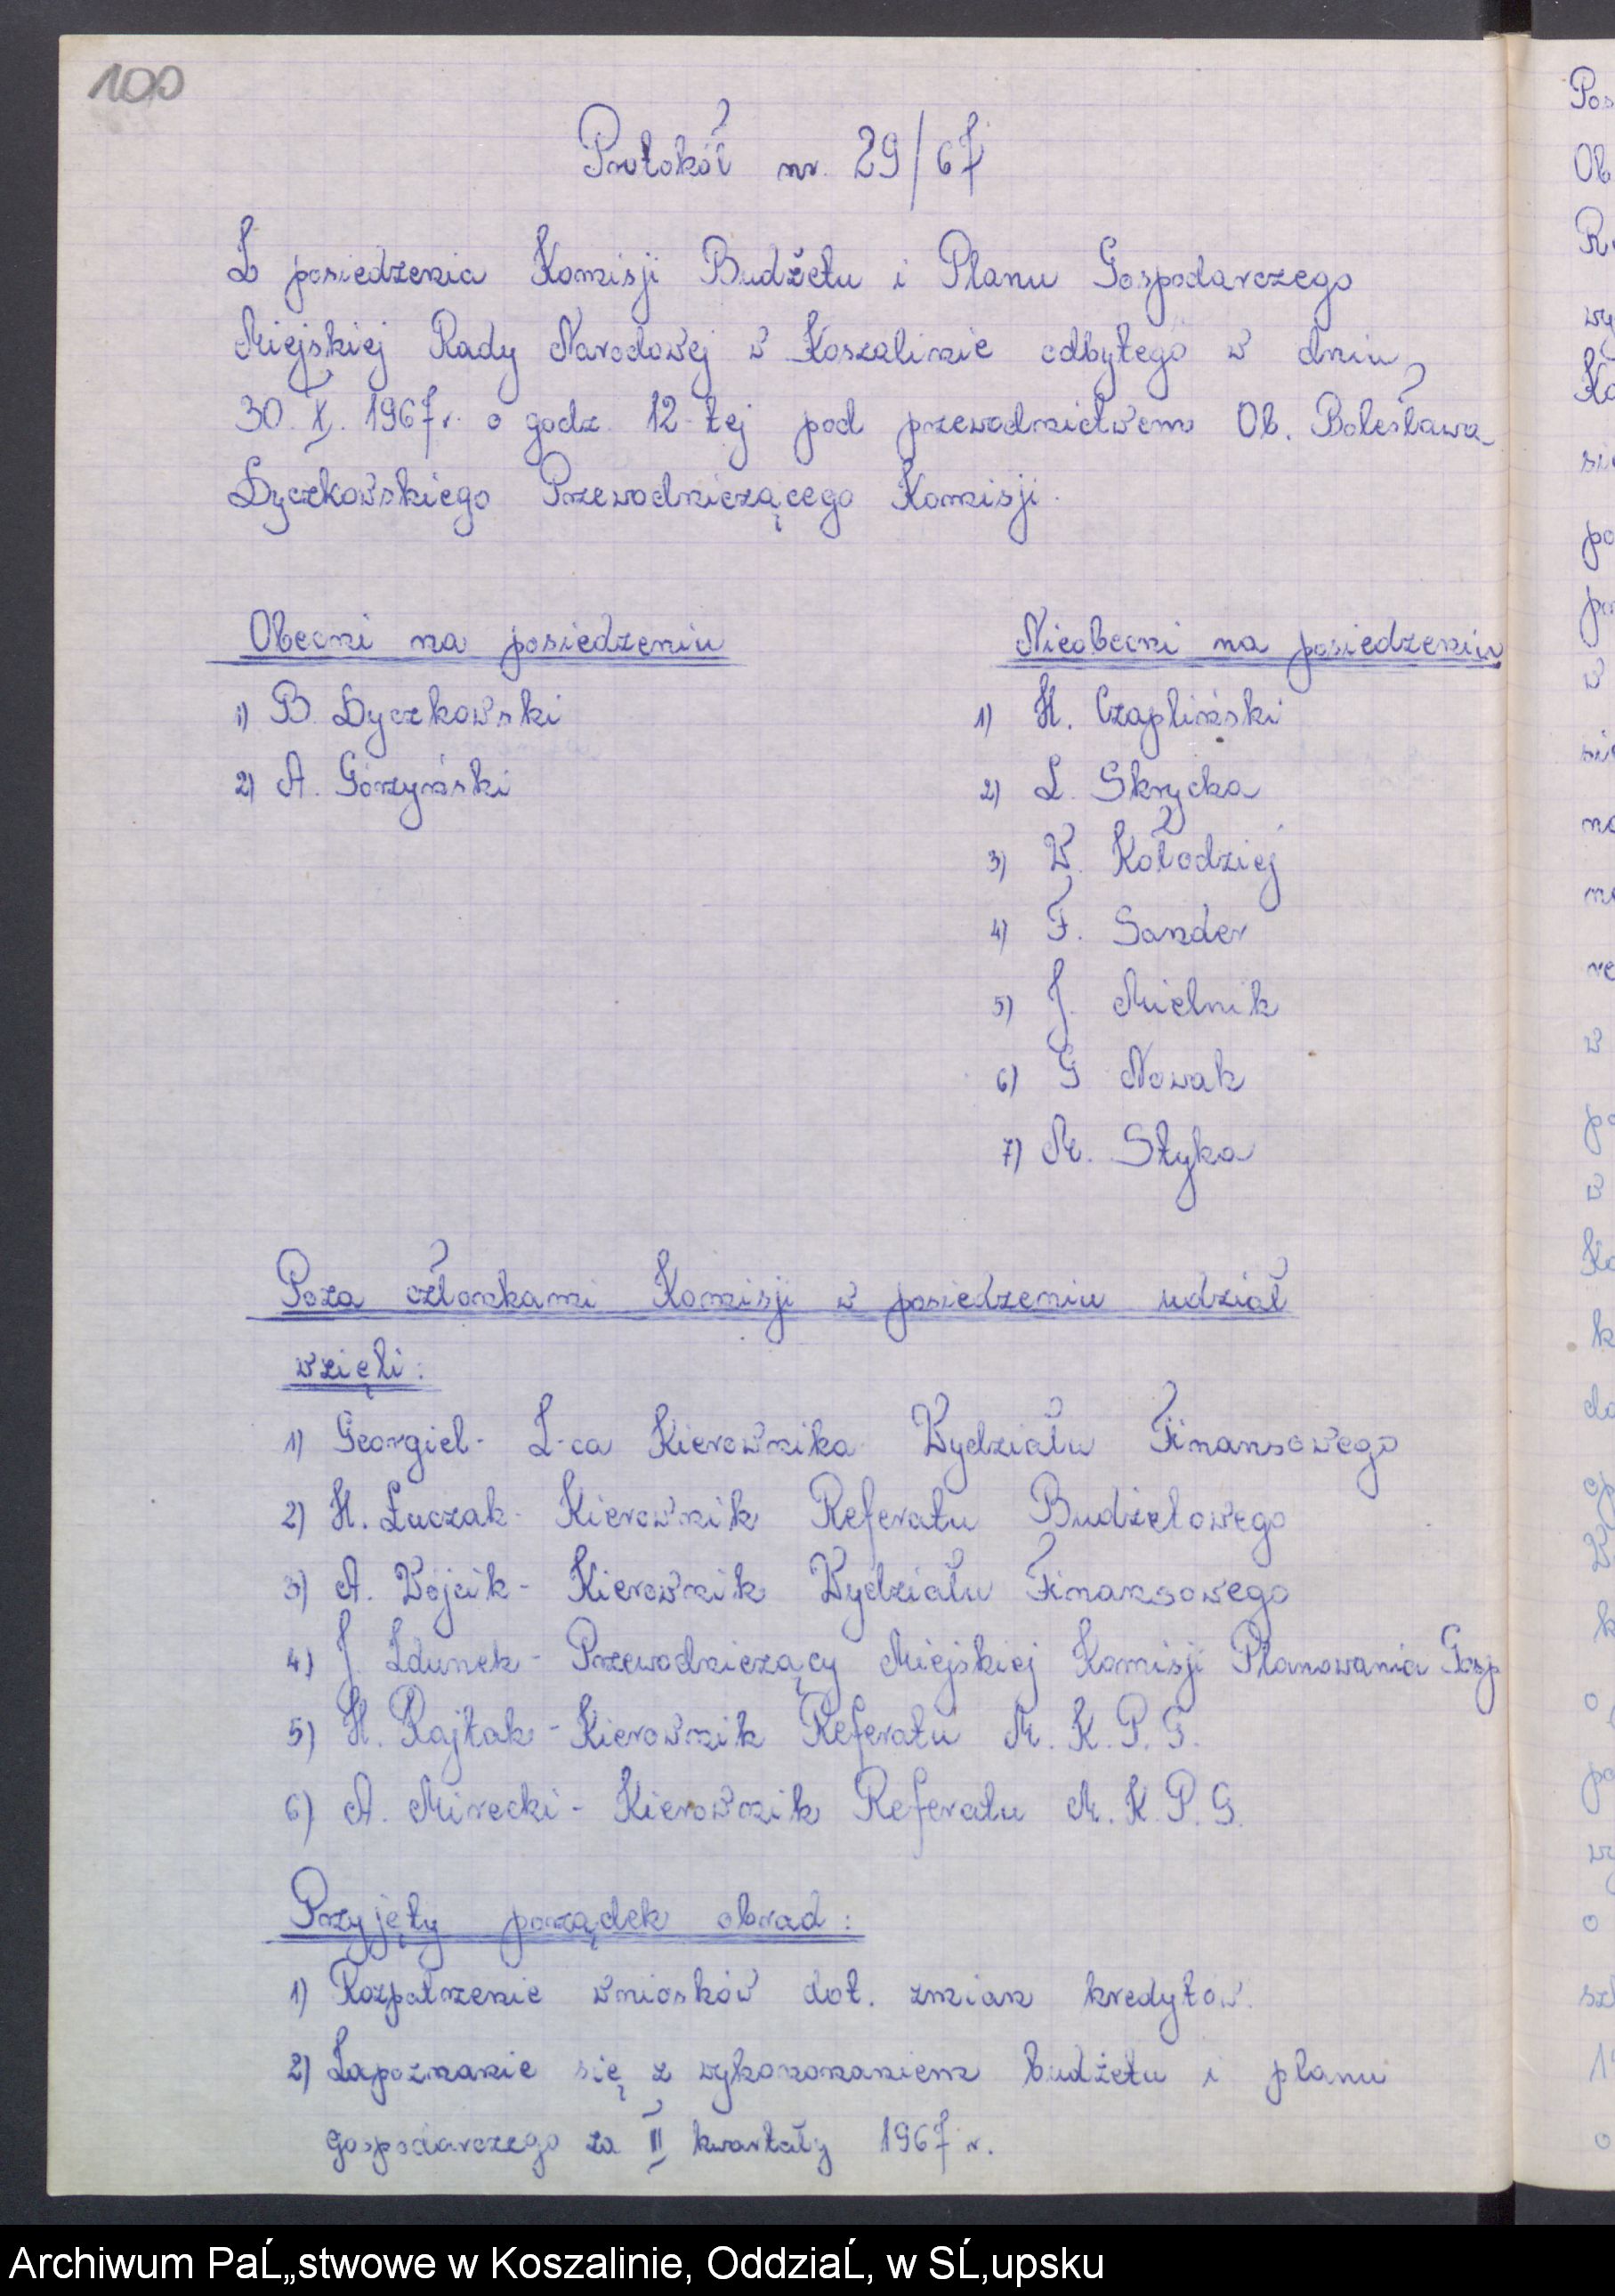 100
Protokół nr. 29/67
Z posiedzenia Komisji Budżetu i Planu Gospodarczego
Miejskiej Rady Narodowej w Koszalinie odbytego w dniu
30. X. 1967r. o godz. 12-tej pod przewodnictwem Ob. Bolesława
Dyczkowskiego Przewodniczącego Komisji.
Obecni na posiedzeniu
Nieobecni na posiedzeniu
1) B. Dyczkowski
1) H. Czapliński
2) A. Górzyński
2) L. Skrycka
3) W. Kołodziej
4) F. Sander
5) J. Mielnik
6) G Nowak
7) M. Styka
Poza członkami Komisji w posiedzeniu udział
wzięli:
1) Georgiel - Z-ca Kierownika Wydziału Finansowego
2) H. Łuczak - Kierownik Referatu Budżetowego
3) A. Wójcik - Kierownik Wydziału Finansowego
4) J. Zdunek - Przewodniczący Miejskiej Komisji Planowania Gosp
5) H. Rajtak - Kierownik Referatu M. K. P. G.
6) A. Mirecki - Kierownik Referatu M. K. P. G.
Przyjęty porządek obrad:
1) Rozpatrzenie wniosków dot. zmian kredytow.
2) Zapoznanie się z wykononaniem budżetu i planu
gospodarczego za II kwartały 1967 r.
Archiwum PaĹ„stwowe w Koszalinie, OddziaĹ‚ w SĹ‚upsku